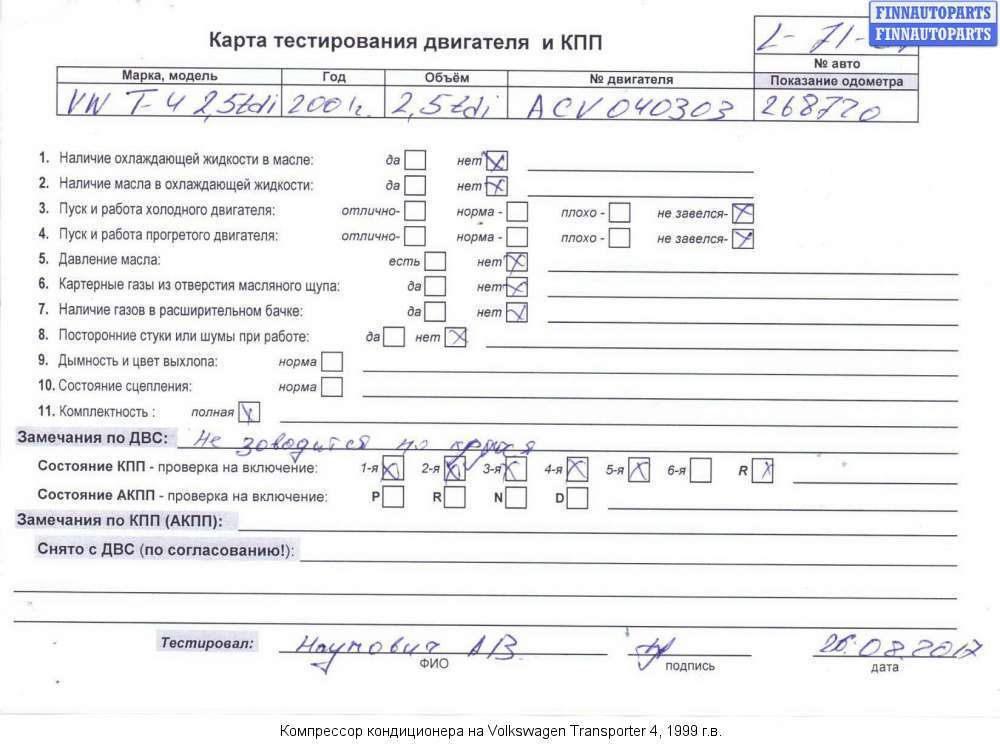 FINNAUTOPARTS
FINNAUTOPARTS
Карта тестирования двигателя и КПП
L- 71-
№ авто
Марка, модель Год Объём № двигателя Показание одометра
VW T-4 2,5tdi 2001г. 2,5tdi ACV040303 268770
1. Наличие охлаждающей жидкости в масле: да нет
2. Наличие масла в охлаждающей жидкости: да нет
3. Пуск и работа холодного двигателя: отлично- норма - плохо - не завелся-
4. Пуск и работа прогретого двигателя: отлично- норма - плохо - не завелся-
5. Давление масла: есть нет
6. Картерные газы из отверстия масляного щупа: да нет
7. Наличие газов в расширительном бачке: да нет
8. Посторонние стуки или шумы при работе: да нет
9. Дымность и цвет выхлопа: норма
10. Состояние сцепления: норма
11. Комплектность : полная
Замечания по ДВС: Не заводится но
Состояние КПП - проверка на включение: 1-я 2-я 3-я 4-я 5-я 6-я R
Состояние АКПП - проверка на включение: P R N D
Замечания по КПП (АКПП):
Снято с ДВС (по согласованию!):
Тестировал: Наумович АВ 26.08.2017
ФИО подпись дата
Компрессор кондиционера на Volkswagen Transporter 4, 1999 г.в.